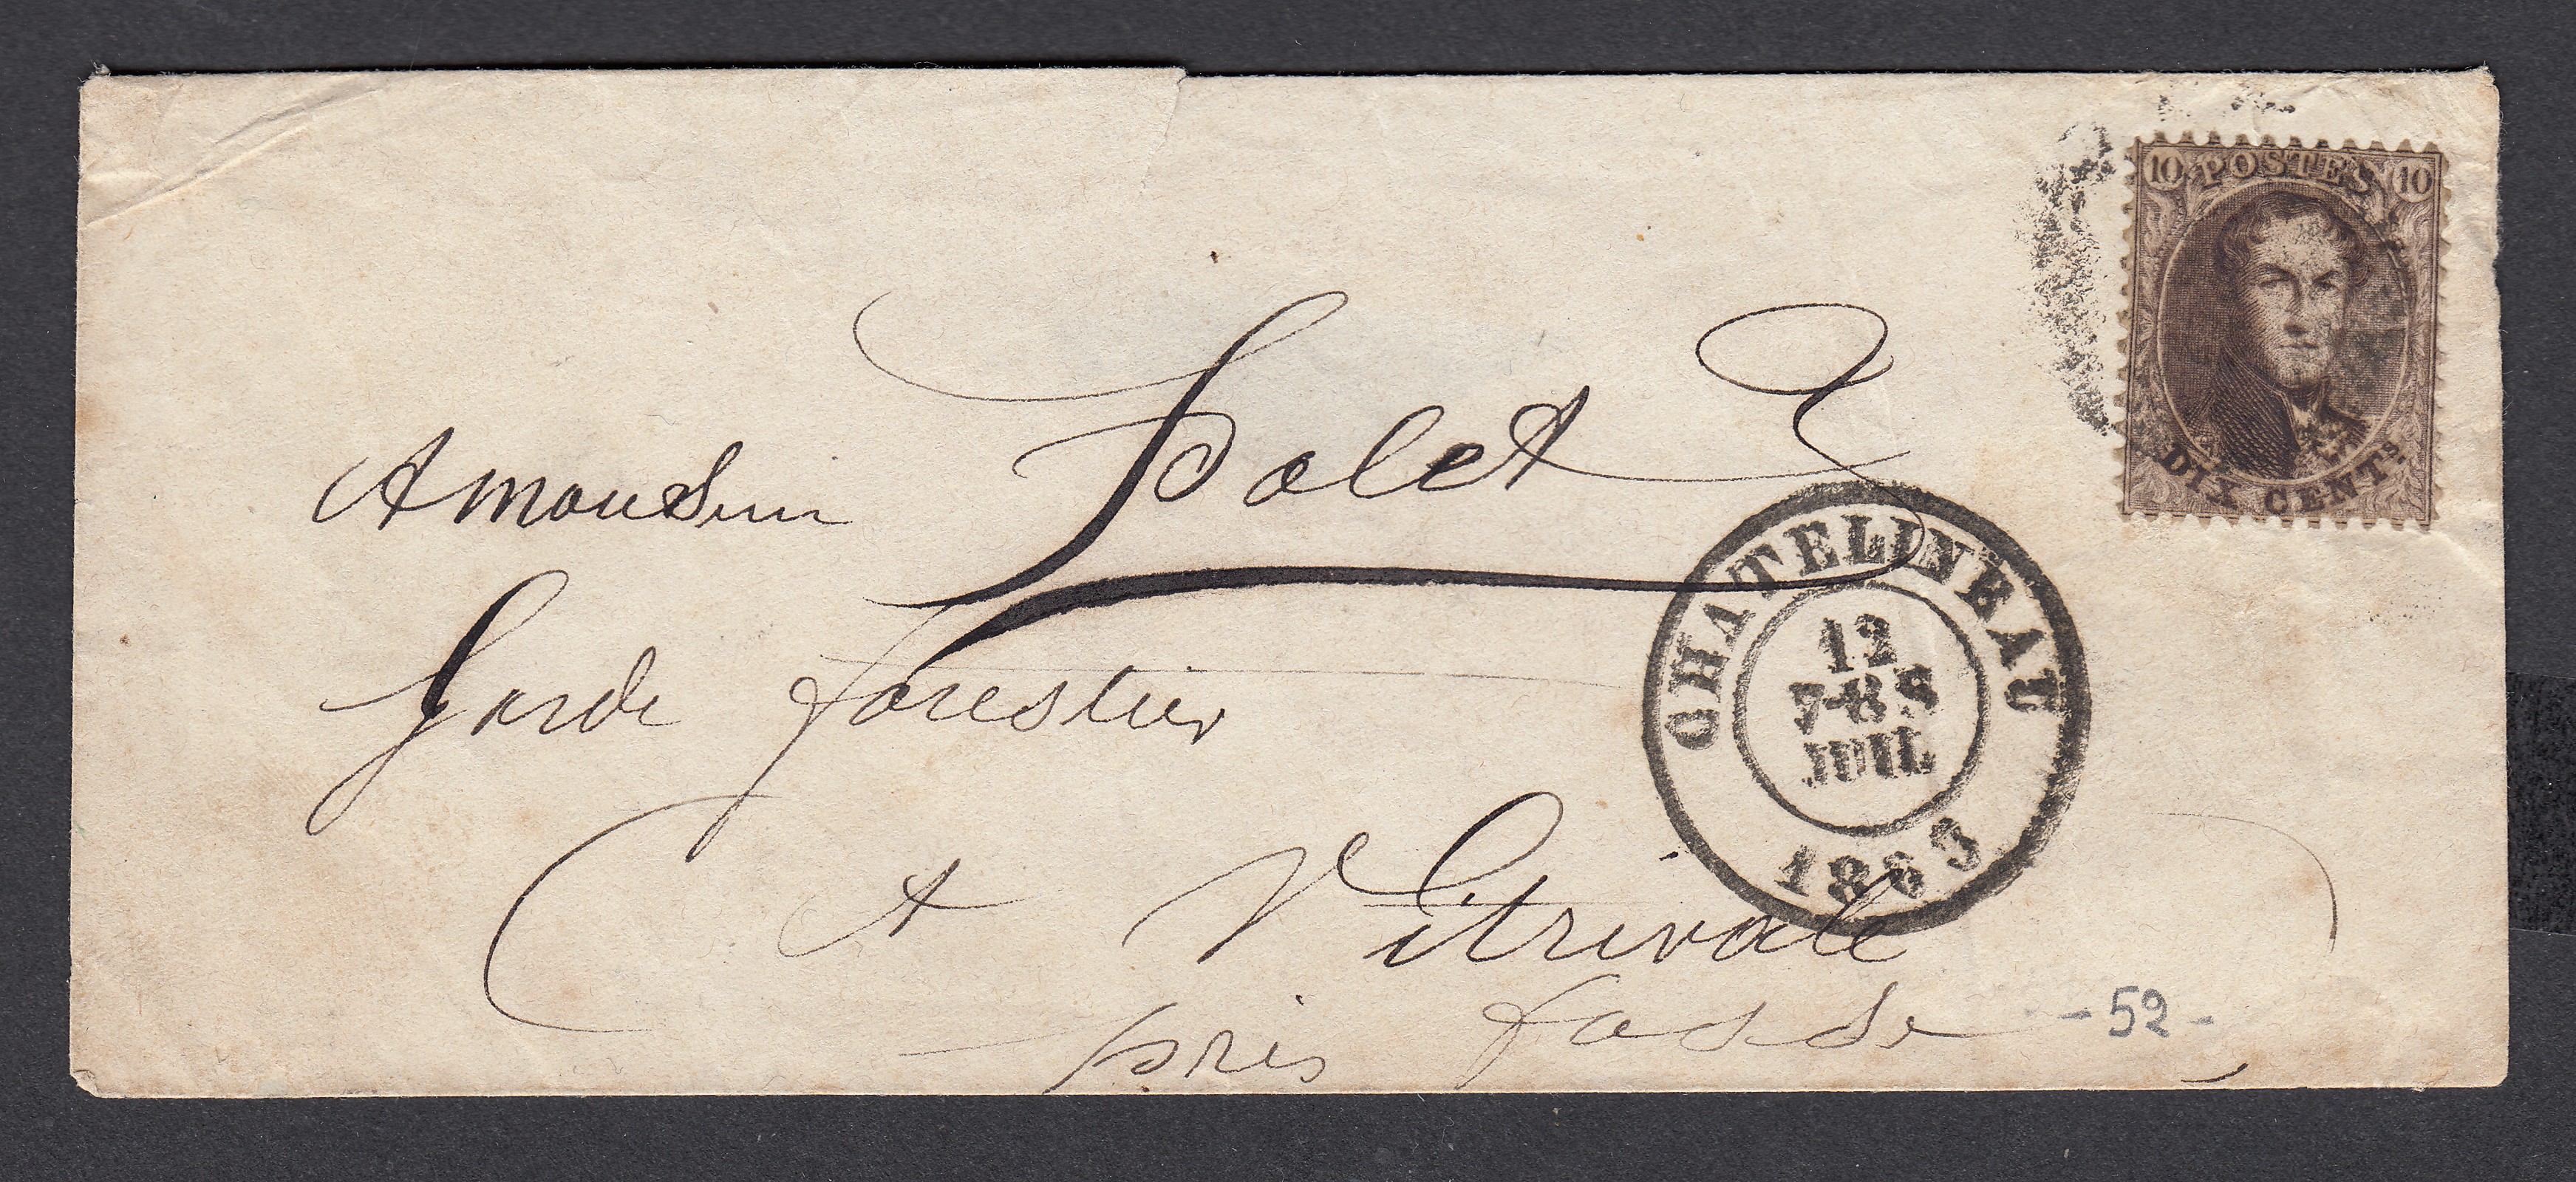 10 POSTES 10
DIX CENTS
A monsieur Dolet
CHATELINEAU
12
7-8 S
JUIL
1863
Garde forestier
A Vitrival
près fosse
- 52 -